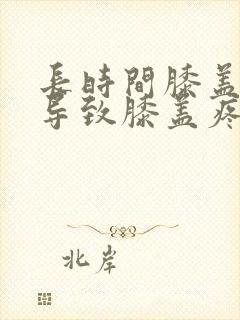 長時間膝盖
导致膝盖疼
北岸